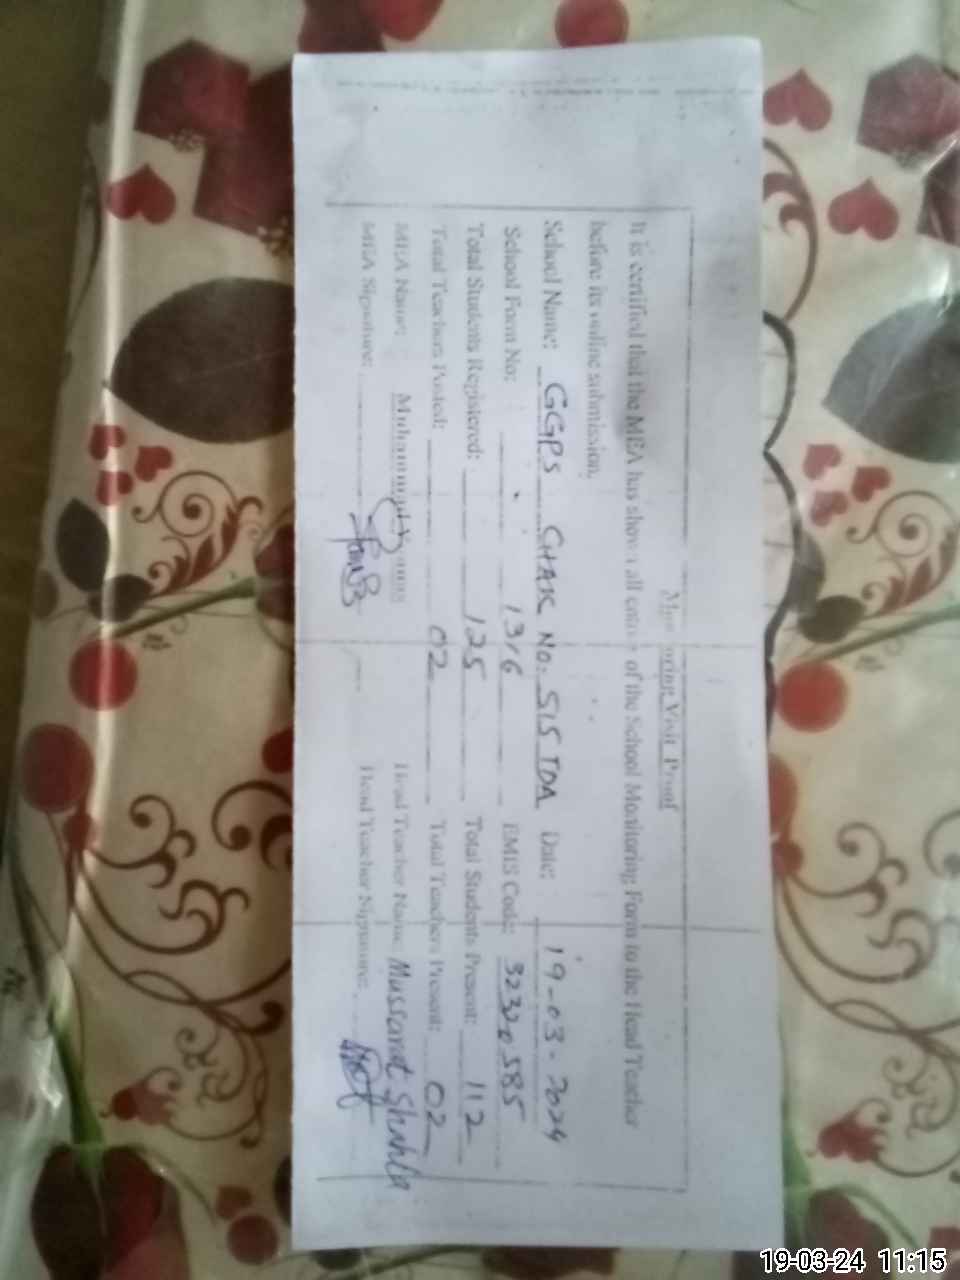 Monitoring Visit Proof
It is certified that the MEA has shown all entries of the School Monitoring Form to the Head Teacher
before its online submission.
School Name: GGPS CHAK NO: 515 TDA Date: 19-03-2024
School Form No: 1316 EMIS Code: 32320585
Total Students Registered: 125 Total Students Present: 112
Total Teachers Posted: 02 Total Teachers Present: 02
MEA Name: Muhammad Head Teacher Name: Mussarat Shahla
MEA Signature: Head Teacher Signature:
19-03-24 11:15